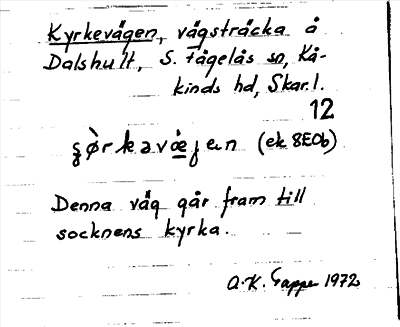 Kyrkevägen, vägsträcka å
Dalshult, S. Fågelås sn, Kå-
kinds hd, Skar.l.
12
(ek 8E0b)
Denna väg går fram till
socknens kyrka.
1972